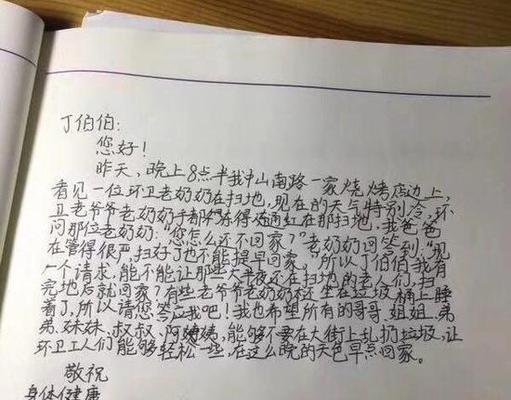 丁伯伯:
您好!
昨天,晚上8点半我中山南路一家烧烤店边上,
看见一位环卫老奶奶在扫地,现在的天气特别冷,环
卫老爷爷老奶奶手都冻得通红在那扫地,我爸爸
问那位老奶奶:"您怎么还不回家?"老奶奶回答到:"现
在管得很严,扫好了也不能提早回家。"所以丁伯伯我有
一个请求,能不能让那些大半夜还在扫地的老人们,扫
完地后就回家,有些老爷爷老奶奶还坐在垃圾桶上睡
着了,所以请您答应我吧!我也希望所有的哥哥、姐姐、弟
弟、妹妹、叔叔、阿姨,能够不要在大街上乱扔垃圾,让
环卫工人们能够轻松一些,在这么晚的天色早点回家。
敬祝
身体健康